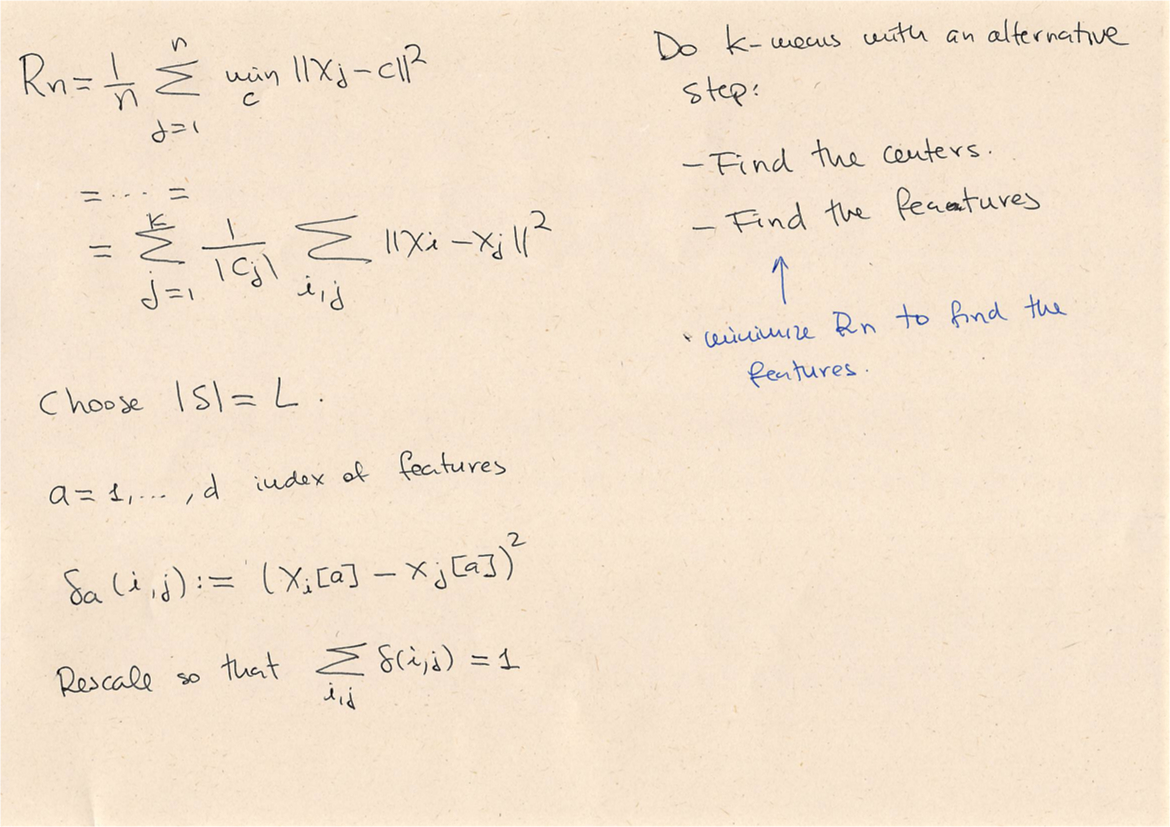 Rn = 1/n Σ_{j=1}^{n} min_c ||Xj − c||²
= ... =
= Σ_{j=1}^{k} 1/|Cj| Σ_{i,j} ||Xi − Xj||²
Choose |S| = L.
a = 1, ..., d index of features
δa(i,j) := (Xi[a] − Xj[a])²
Rescale so that Σ_{i,j} δ(i,j) = 1
Do k-means with an alternative
step:
– Find the centers.
– Find the features
↑
minimize Rn to find the
features.